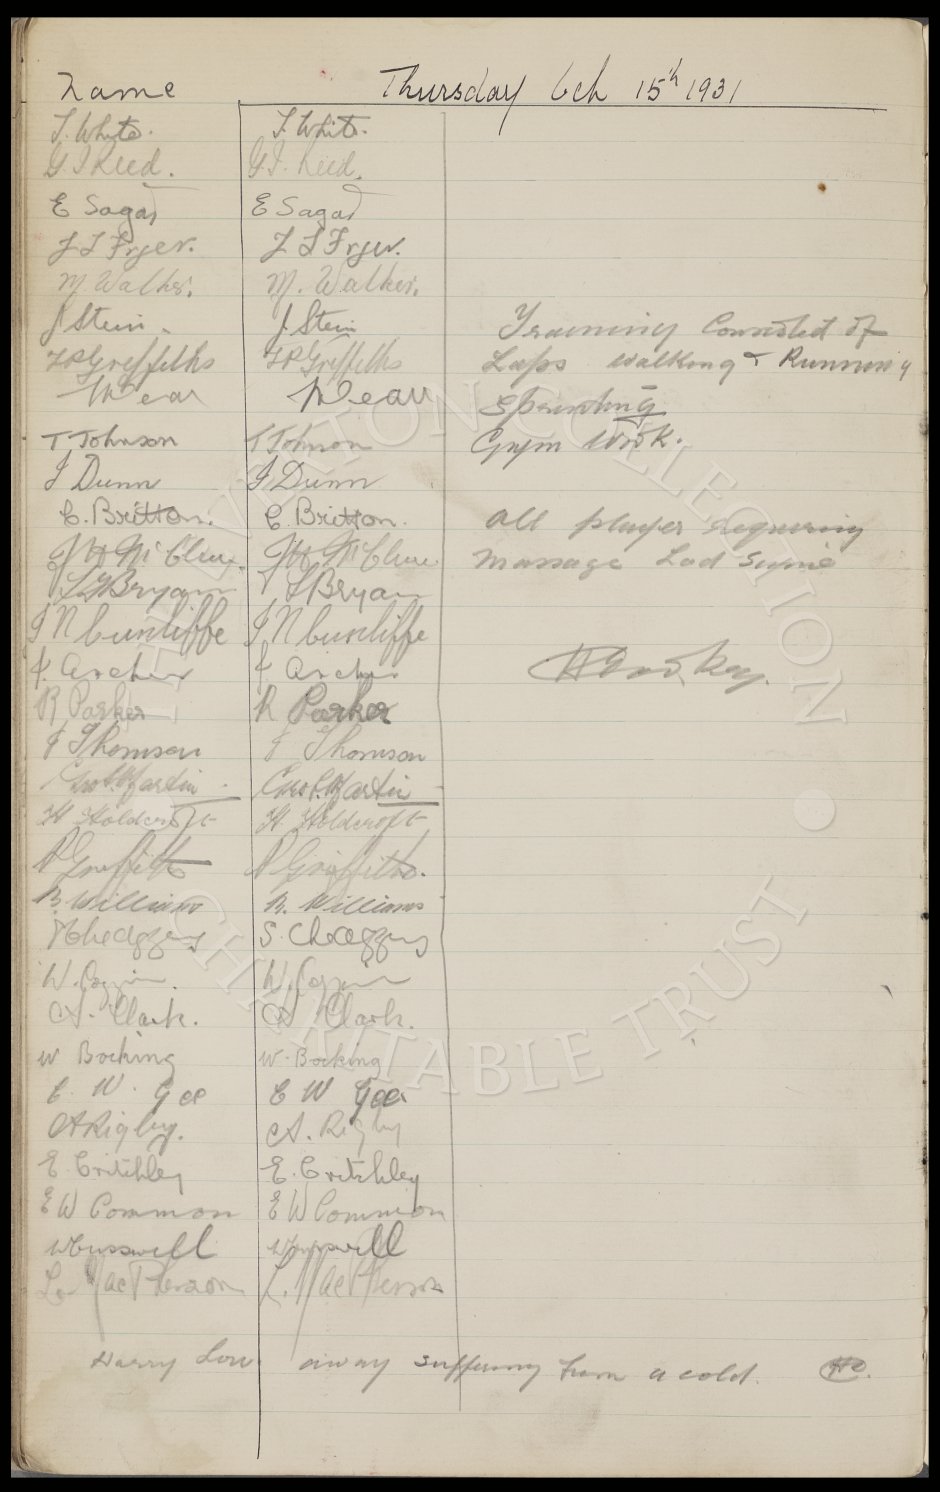 Name Thursday Oct 15th 1931
T. White. T. White.
G. J. Reed. G. J. Reed.
E Sagar E Sagar
J L Fryer. J L Fryer.
M. Walker. M. Walker.
J Stein. J Stein
T P Griffiths T P Griffiths
T Johnson T Johnson
J Dunn J Dunn
C. Britton. C. Britton.
J H McClure. J H McClure
L F Bryan L Bryan
J N Cunliffe J N Cunliffe
J. Archer J. Archer
R Parker R Parker
J Thomson J Thomson
Geo. S. Martin Geo. S. Martin
H Holdcroft H. Holdcroft
P Griffiths P Griffiths.
B. Williams B. Williams
W. Coggins. W. Coggins
A. Clark. A Clark.
W Bocking W. Bocking
C. W. Gee C W Gee
A Rigby. A. Rigby
E. Critchley E. Critchley
E W Common E W Common
W Cresswell W Cresswell
L. MacPherson L. MacPherson
Training Consisted of
Laps walking & Running
Sprinting
Gym Work.
All player requiring
massage had same
H Cooke
Harry Low away suffering from a cold. HC.
THE EVERTON COLLECTION • CHARITABLE TRUST •